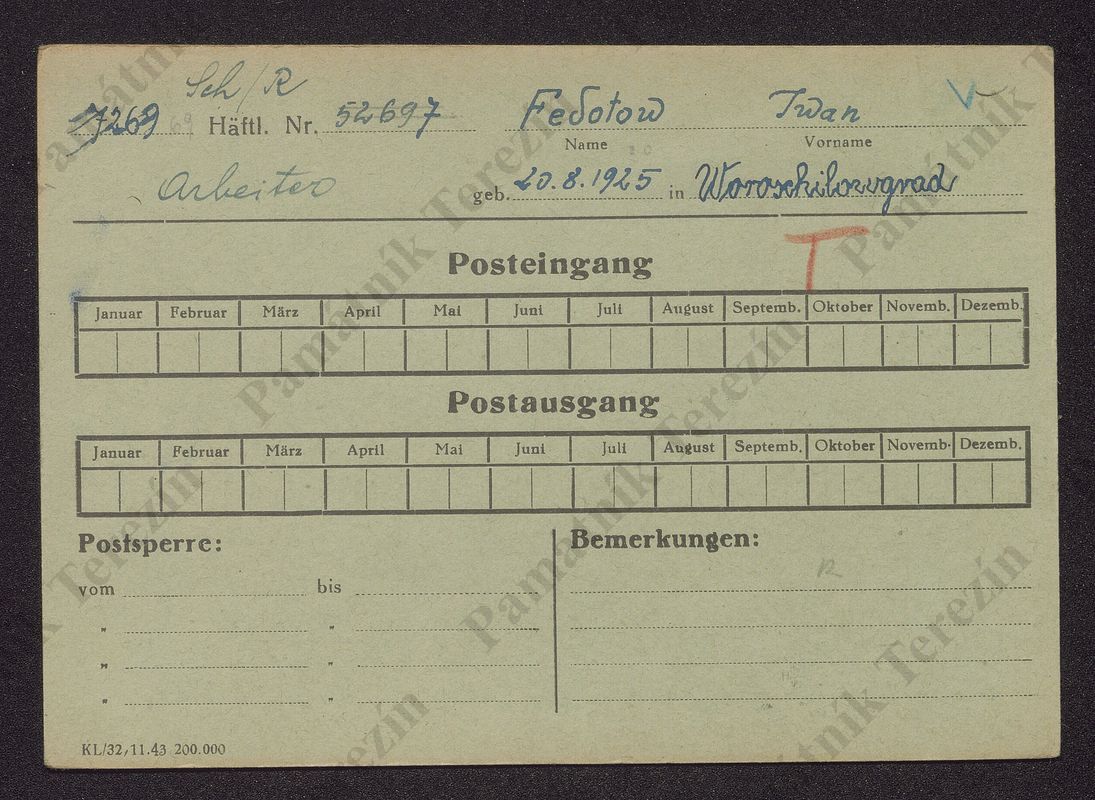 Sch/R V
7269 69 Häftl. Nr. 52697 Fedotow Iwan
Name Vorname
Arbeiter geb. 20.8.1925 in Woroschilowgrad
T
Posteingang
Januar Februar März April Mai Juni Juli August Septemb. Oktober Novemb. Dezemb.
Postausgang
Januar Februar März April Mai Juni Juli August Septemb. Oktober Novemb. Dezemb.
Postsperre: Bemerkungen:
R
vom bis
" "
" "
" "
KL/32/11.43 200.000
Památník Terezín